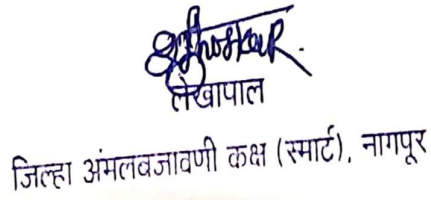 लेखापाल
जिल्हा अंमलबजावणी कक्ष (स्मार्ट), नागपूर